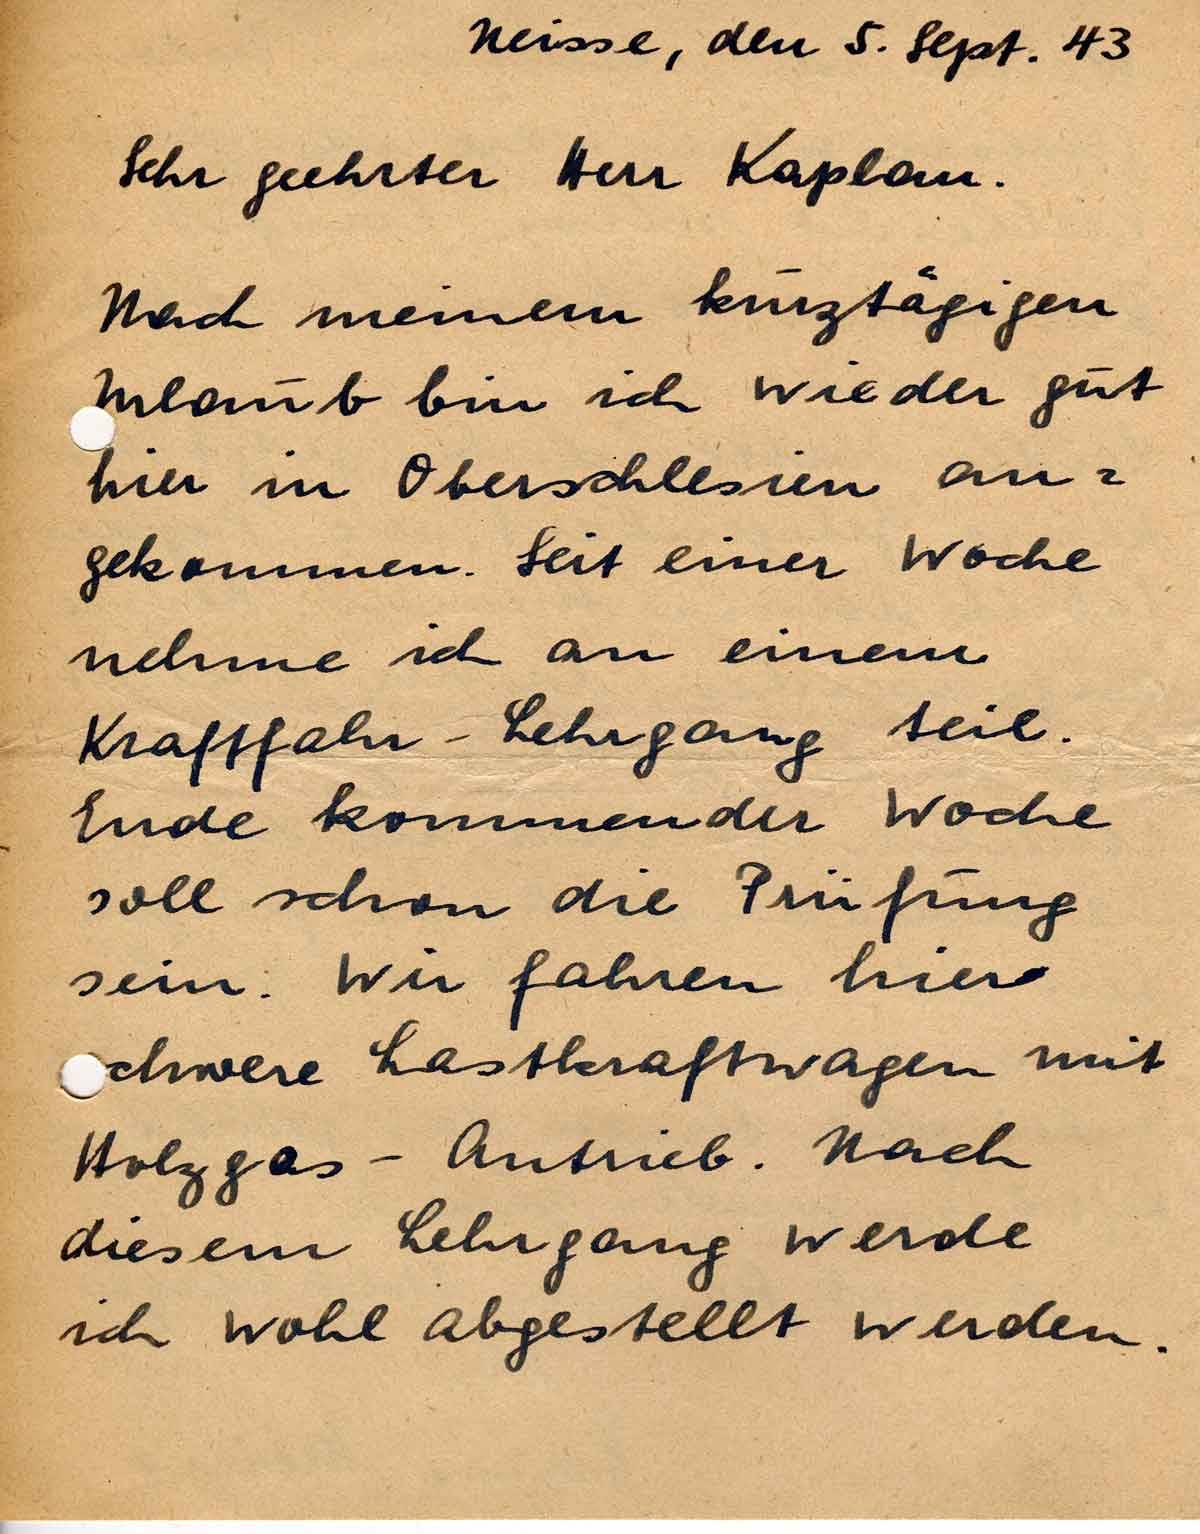 Neisse, den 5. Sept. 43
Sehr geehrter Herr Kaplan.
Nach meinem kurztägigen
Urlaub bin ich wieder gut
hier in Oberschlesien an=
gekommen. Seit einer Woche
nehme ich an einem
Kraftfahr-Lehrgang teil.
Ende kommender Woche
soll schon die Prüfung
sein. Wir fahren hier
schwere Lastkraftwagen mit
Holzgas-Antrieb. Nach
diesem Lehrgang werde
ich wohl abgestellt werden.